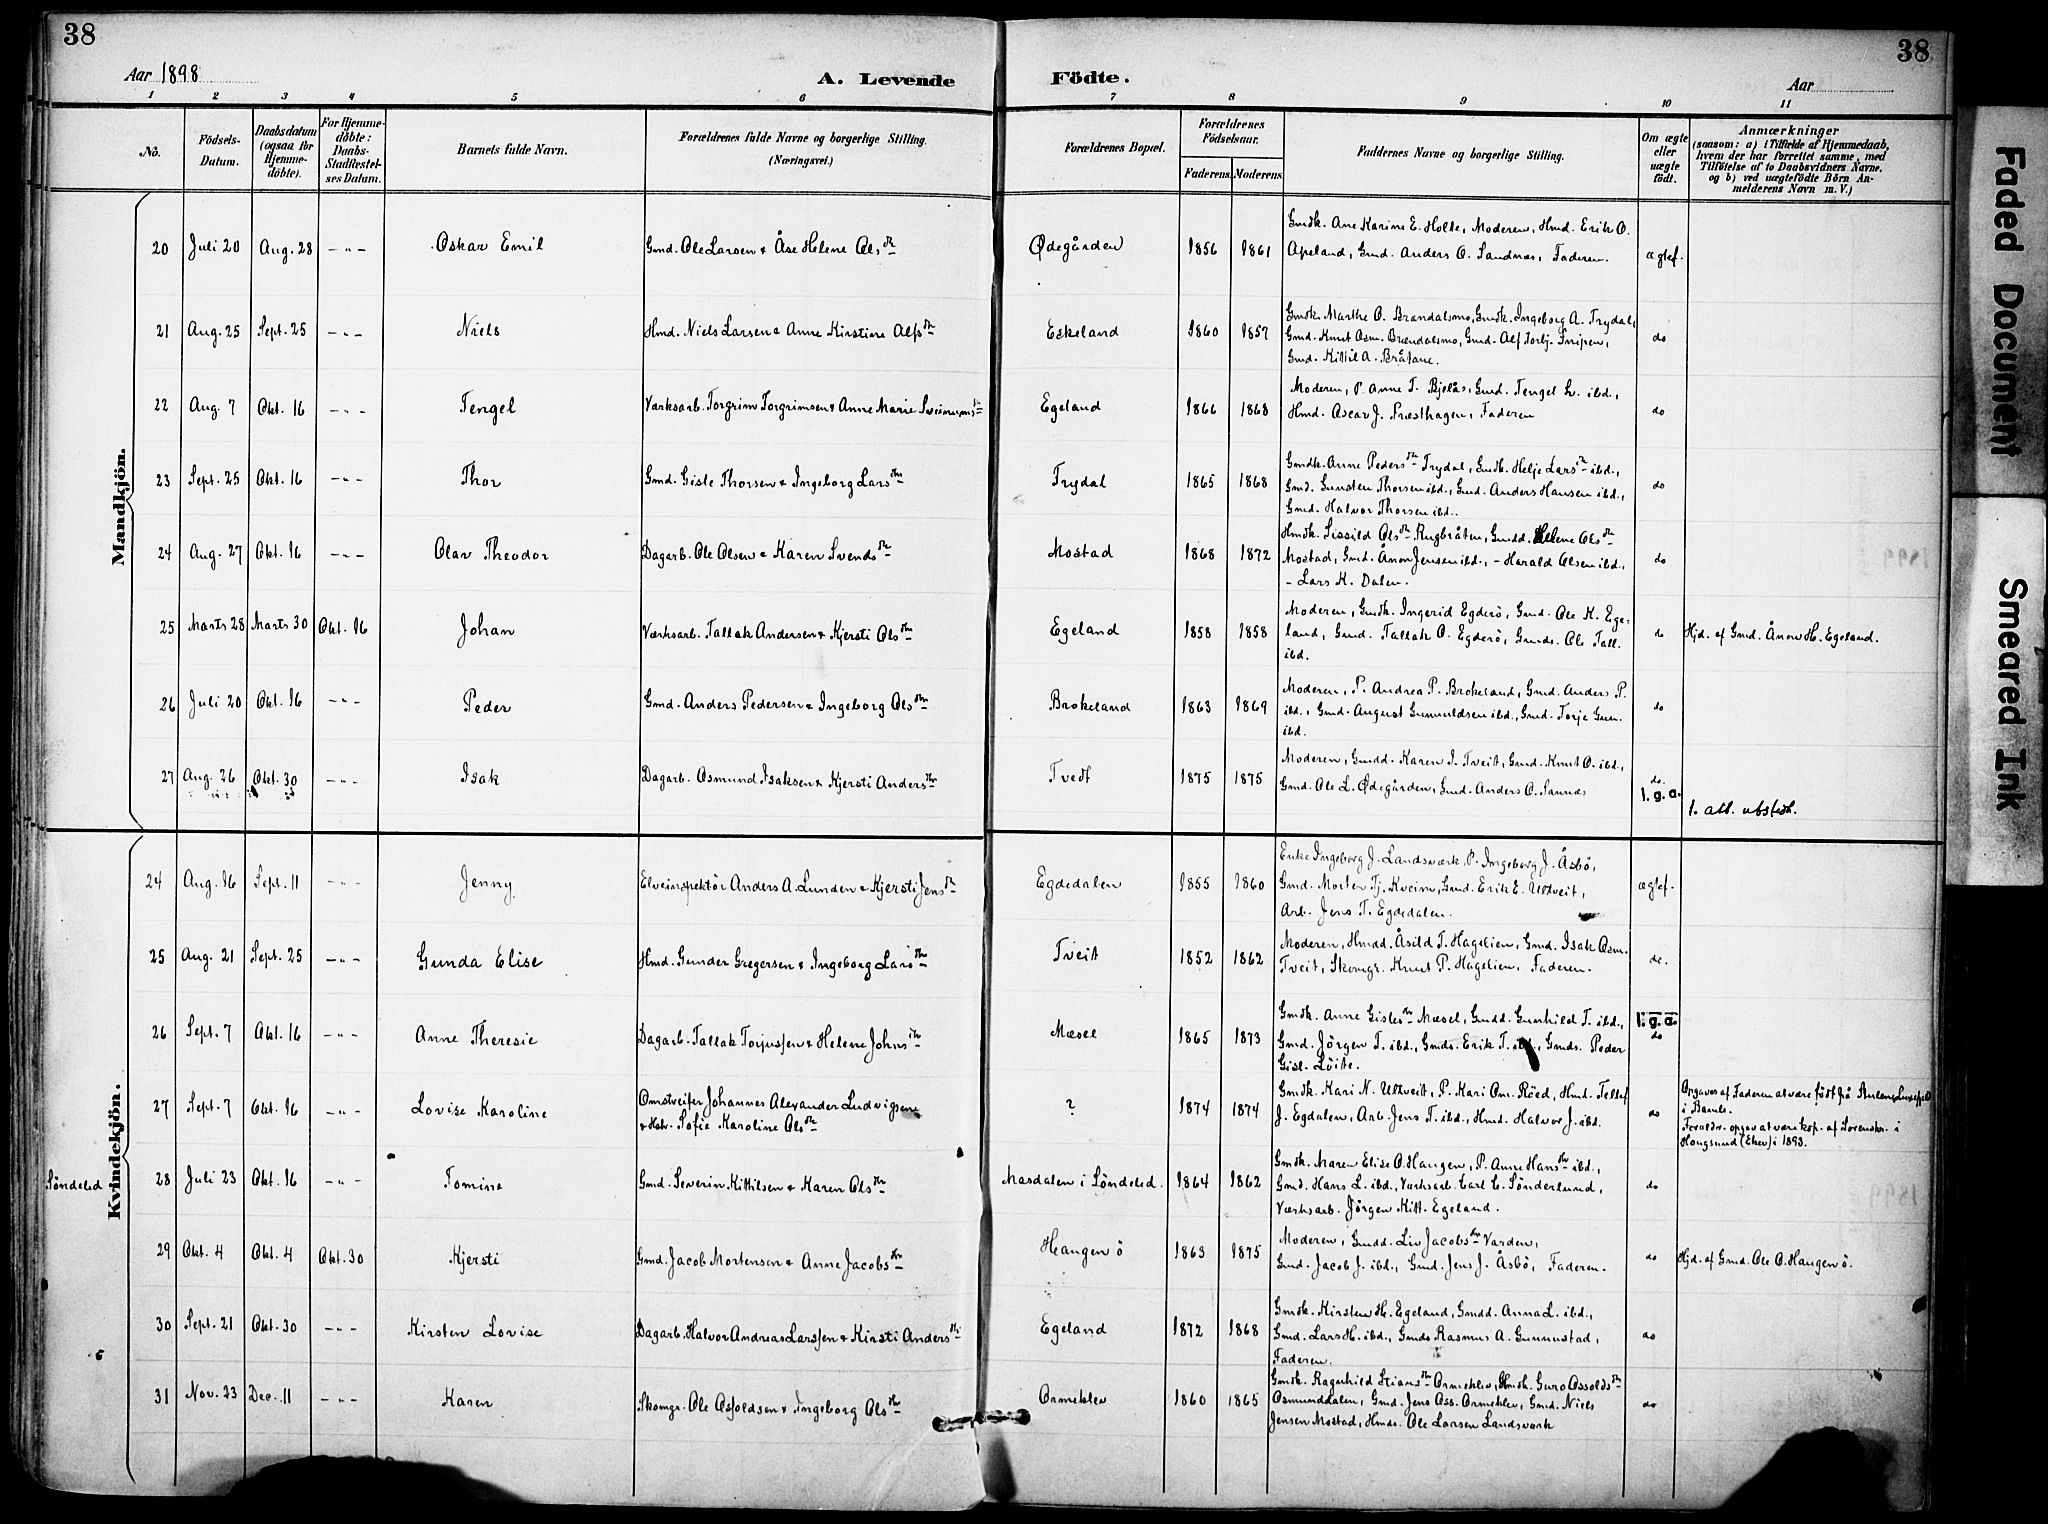 38
38
Aar 1898
A. Levende Födte.
Aar
1 2 3 4 5 6 7 8 9 10 11
No.
Födsels-Datum.
Daabsdatum (ogsaa for Hjemme-döbte).
For Hjemme-döbte: Daabs-Stadfæstel-ses Datum.
Barnets fulde Navn.
Forældrenes fulde Navne og borgerlige Stilling. (Næringsvei.)
Forældrenes Bopæl.
Forældrenes Födselsaar.
Faderens. Moderens.
Faddernes Navne og borgerlige Stilling.
Om ægte eller uægte födt.
Anmærkninger
(saasom: a) i Tilfælde af Hjemmedaab, hvem der har forrettet samme, med Tilföielse af to Daabsvidners Navne. og b) ved uægtefödte Börn An-melderens Navn m. V.)
Mandkjön.
20 Juli 20 Aug. 28 -"- Oskar Emil Gmd. Ole Larsen & Åse Helene Olsdtr Ødegården 1856 1861 Gmdk. Ane Karine E. Holte, Moderen, Hmd. Erik O. Apeland, Gmd. Anders O. Sandnæs, Faderen. ægtef.
21 Aug. 25 Sept. 25 -"- Niels Hmd. Niels Larsen & Anne Kirstine Alfsdtr Eskeland 1860 1857 Gmdk. Marthe O. Brændalsmo, Gmdk. Ingeborg A. Trydal, Gmd. Knut Asm. Brændalsmo, Gmd. Alf Torbj. Snipen, Gmd. Kittil A. Bråtane. do
22 Aug. 7 Okt. 16 -"- Tengel Værksarb. Torgrim Torgrimsen & Anne Marie Egeland 1866 1868 Moderen, P. Anne T. Bjelås, Gmd. Tengel ibd., Hmd. Oscar J. Præsthagen, Faderen do
23 Sept. 25 Okt. 16 -"- Thor Gmd. Gisle Thorsen & Ingeborg Larsdtr Trydal 1865 1868 Gmdk. Anne Pedersdtr Trydal, Gmdk. Helje Larsdtr ibd., Gmd. Gunsten Thorsen ibd., Gmd. Anders Hansen ibd., Gmd. Halvor Thorsen ibd. do
24 Aug. 27 Okt. 16 -"- Olav Theodor Dagarb. Ole Olsen & Karen Svendsdtr Mostad 1868 1872 Hmdk. Sissild Olsdtr Rugbråten, Gmdd. Helene Olsdtr Mostad, Gmd. Ånon Jensen ibd., - Harald Olsen ibd., - Lars K. Dalen. do
25 Marts 28 Marts 30 Okt. 16 Johan Værksarb. Tallak Andersen & Kjersti Olsdtr Egeland 1858 1858 Moderen, Gmdk. Ingerid Egderö, Gmd. Ole K. Ege-land, Gmd. Tallak O. Egderö, Gmds. Ole Tall. ibd. do Hjd. af Gmd. Ånon H. Egeland.
26 Juli 20 Okt. 16 -"- Peder Gmd. Anders Pedersen & Ingeborg Olsdtr Brokeland 1863 1869 Moderen, P. Andrea P. Brokeland, Gmd. Anders P. ibd., Gmd. August Gunnuldsen ibd., Gmd. Torje Gun. ibd. do
27 Aug. 26 Okt. 30 -"- Isak Dagarb. Osmund Isaksen & Kjersti Andersdtr Tvedt 1875 1875 Moderen, Gmdd. Karen I. Tveit, Gmd. Knut O. ibd., Gmd. Ole L. Ødegården, Gmd. Anders O. Sannæs do. l. g. a. l. att. utstedt.
Kvindekjön.
24 Aug. 16 Sept. 11 -"- Jenny Elveinspektör Anders A. Lunden & Kjersti Jensdtr Egdedalen 1855 1860 Enke Ingeborg J. Landsværk, P. Ingeborg J. Åsbö, Gmd. Morten Tj. Kveim, Gmd. Erik E. Ultveit, Arb. Jens T. Egdedalen. ægtef.
25 Aug. 21 Sept. 25 -"- Gunda Elise Hmd. Gunder Gregersen & Ingeborg Larsdtr Tveit 1852 1862 Moderen, Hmdd. Åsild T. Hagelien, Gmd. Isak Osm. Tveit, Skomgr. Knut P. Hagelien, Faderen. do.
26 Sept. 7 Okt. 16 -"- Anne Theresie Dagarb. Tallak Torjussen & Helene Johnsdtr Mæsel 1865 1873 Gmdk. Anne Gislesdtr Mæsel, Gmdd. Gunhild T. ibd., Gmd. Jörgen T. ibd., Gmds. Erik T. ibd., Gmds. Peder Gisl. Löite. l. g. a. do
27 Sept. 7 Okt. 16 -"- Lovise Karoline Omstreifer Johannes Alexander Ludvigsen & Hstr. Sofie Karoline Olsdtr ? 1874 1874 Gmdk. Kari N. Ultveit, P. Kari Om. Röed, Hmd. Tellef J. Egdalen, Arb. Jens T. ibd., Hmd. Halvor J. ibd. do Opgaves af Faderen at være født på i Bamle. Foreldr. opgav at være kop. af Sorenskr. i Hougsund (Eker) i 1893.
Söndeled 28 Juli 23 Okt. 16 -"- Tomine Gmd. Severin Kittilsen & Karen Olsdtr Masdalen i Söndeled. 1864 1862 Gmdk. Maren Elise O. Haugen, P. Anne Hansdtr ibd., Gmd. Hans L. ibd., Værksarb. Carl C. Sönderlund, Værksarb. Jörgen Kitt. Egeland. do
29 Okt. 4 Okt. 4 Okt. 30 Kjersti Gmd. Jacob Mortensen & Anne Jacobsdtr Haugen ö 1863 1875 Moderen, Gmdd. Liv Jacobsdtr Varden, Gmd. Jacob J. ibd., Gmd. Jens J. Åsbö, Faderen. do Hjd. af Gmd. Ole O. Haugen ö.
30 Sept. 21 Okt. 30 -"- Kirsten Lovise Dagarb. Halvor Andreas Larssen & Kirsti Andersdtr Egeland 1872 1868 Gmdk. Kirsten H. Egeland, Gmdd. Anna L. ibd., Gmd. Lars H. ibd., Gmds Rasmus A. Gunnustad, Faderen. do
31 Nov. 23 Dec. 11 -"- Karen Skomgr. Ole Asfoldsen & Ingeborg Olsdtr Ormeklev 1860 1865 Gmdk. Ragnhild Stiansdtr Ormeklev, Hmdk. Guro Ossoldsdtr Osmunddalen, Gmd. Jens Oss. Ormeklev, Gmd. Niels Jensen Mostad, Hmds. Ole Larsen Landsværk do
Faded Document
Smeared Ink